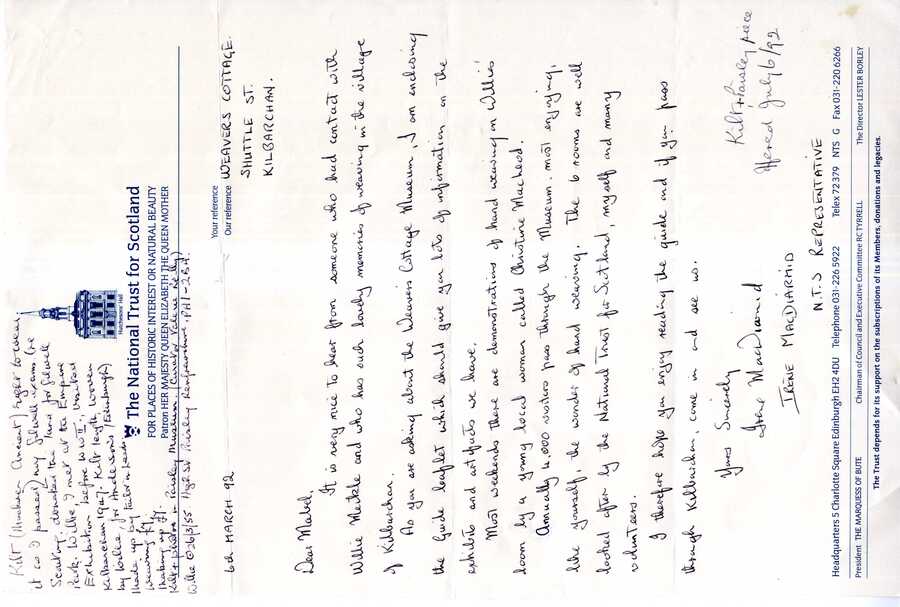 Kilt (Murchison Ancient) right to wear
it co I passed my Silwell exams (he
Scotsman donated the land for Silwell
Park. Willie I met at the Empire
Exhibition before WWII, visited
Kilbarchan 1947. Kilt length woven
by Willie for Anderson's (Edinburgh)
made up by
weaving £9.
making up £7.
Kilt + photos in Paisley Museum (Curator Valerie Reilly)
High St Paisley Renfrewshire. PA1-2BA.
Willie 26/3/55
Hutchesons' Hall
The National Trust for Scotland
FOR PLACES OF HISTORIC INTEREST OR NATURAL BEAUTY
Patron HER MAJESTY QUEEN ELIZABETH THE QUEEN MOTHER
Your reference
Our reference
WEAVERS COTTAGE.
SHUTTLE ST.
KILBARCHAN.
6th MARCH 92
Dear Mabel,
It is very nice to hear from someone who had contact with
Willie Meikle and who has such lovely memories of weaving in the village
of Kilbarchan.
As you are asking about the Weavers Cottage Museum, I am enclosing
the Guide leaflet which should give you lots of information on the
exhibits and artifacts we have.
Most weekends there are demonstrations of hand weaving on Willies'
loom by a young local woman called Christine Macleod.
Annually 4,000 visitors pass through the Museum. most enjoying,
like yourself, the wonder of hand weaving. The 6 rooms are well
looked after by the National Trust for Scotland, myself and many
volunteers.
I therefore hope you enjoy reading the guide and if you pass
through Kilbarchan, come in and see us.
Yours Sincerely
Irene MacDiarmid
IRENE MACDIARMID
N.T.S REPRESENTATIVE
Kilt + Paisley piece
July 6/92
Headquarters 5 Charlotte Square Edinburgh EH2 4DU Telephone 031-226 5922 Telex 72379 NTS G Fax 031-220 6266
President THE MARQUESS OF BUTE Chairman of Council and Executive Committee RC TYRRELL The Director LESTER BORLEY
The Trust depends for its support on the subscriptions of its Members, donations and legacies.